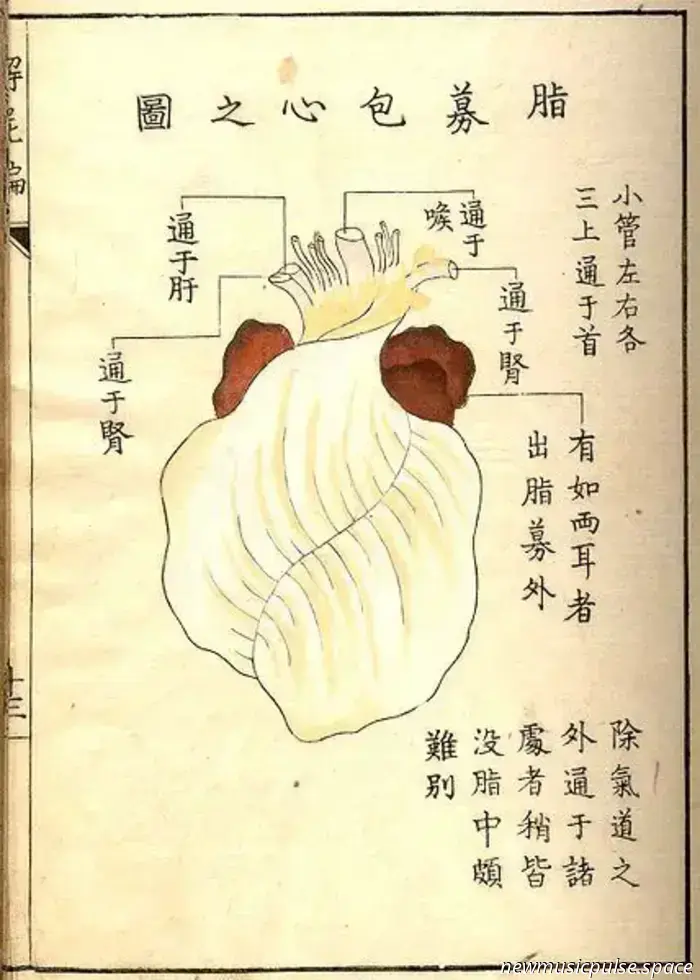 脂募包心之圖
小管左右各
三上通于首
通于
喉
通于肝
通于腎
通于腎
有如両耳者
出脂募外
除氣道之
外通于諸
處者稍皆
没脂中頗
難別
十三
newmusicpulse.space